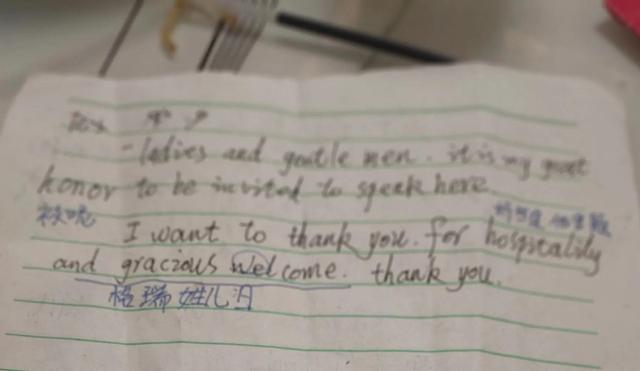 - ladies and gentle men. it is my great
honor to be invited to speak here.
I want to thank you. for hospitality
and gracious welcome. thank you.
格瑞姓儿汩